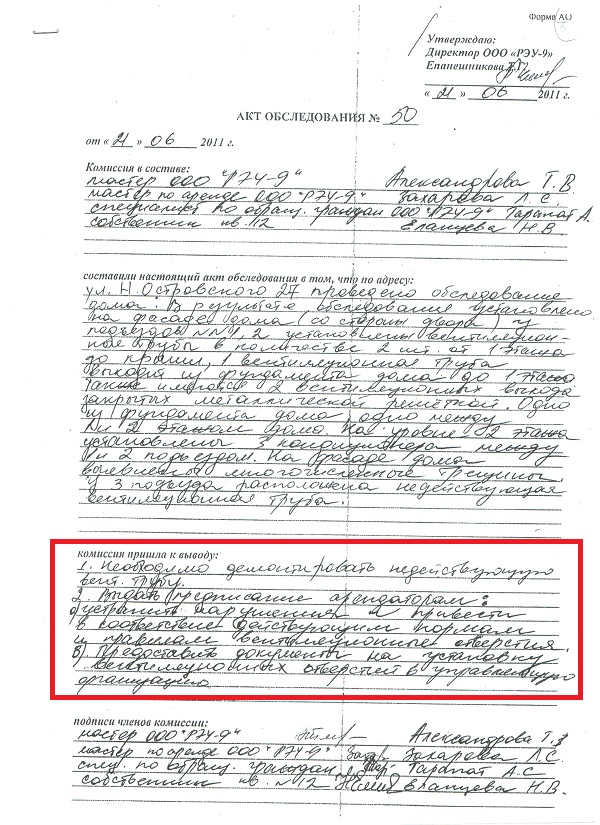 Форма АО
Утверждаю:
Директор ООО «РЭУ-9»
Епанешникова
« 21 » 06 2011 г.
АКТ ОБСЛЕДОВАНИЯ № 50
от « 21 » 06 2011 г.
Комиссия в составе:
мастер ООО "РЭУ-9" Александрова Т.В
мастер по аренде ООО "РЭУ-9" Захарева Л.С.
специалист по обращ. граждан ООО "РЭУ-9" Тарапат А.
собственник кв. 112 Еланцева Н.В.
составили настоящий акт обследования в том, что по адресу:
ул. Н.Островского 27 проведено обследование
дома. В результате обследования установлено
на фасаде дома (со стороны двора) у
подъездов №№1,2 установлены вентиляцион-
ные трубы в количестве 2 шт. от 1 этажа
до крыши, 1 вентиляционная труба
выходит из фундамента дома до 1 этажа
также имеются 2 вентиляционных выхода
закрытых металлической решёткой. Одно
из фундамента дома, одно между
1 и 2 этажом дома. На уровне 2 этажа
установлены 3 кондиционера между
1 и 2 подъездом. На фасаде дома
выявлены многочисленные трещины,
у 3 подъезда расположена недействующая
вентиляционная труба.
комиссия пришла к выводу:
1. Необходимо демонтировать недействующую
вент. трубу.
2. Выдать предписание арендаторам:
а) устранить нарушения и привести
в соответствие действующим нормам
и правилам вентиляционные отверстия.
в) Предоставить документы на установку
вентиляционных отверстий в управляющую
организацию
подписи членов комиссии:
мастер ООО "РЭУ-9" Александрова Т.
мастер по аренде ООО "РЭУ-9" Захарева Л.С.
спец. по обращ. граждан Тарапат А.С
собственник кв. №12 Еланцева Н.В.